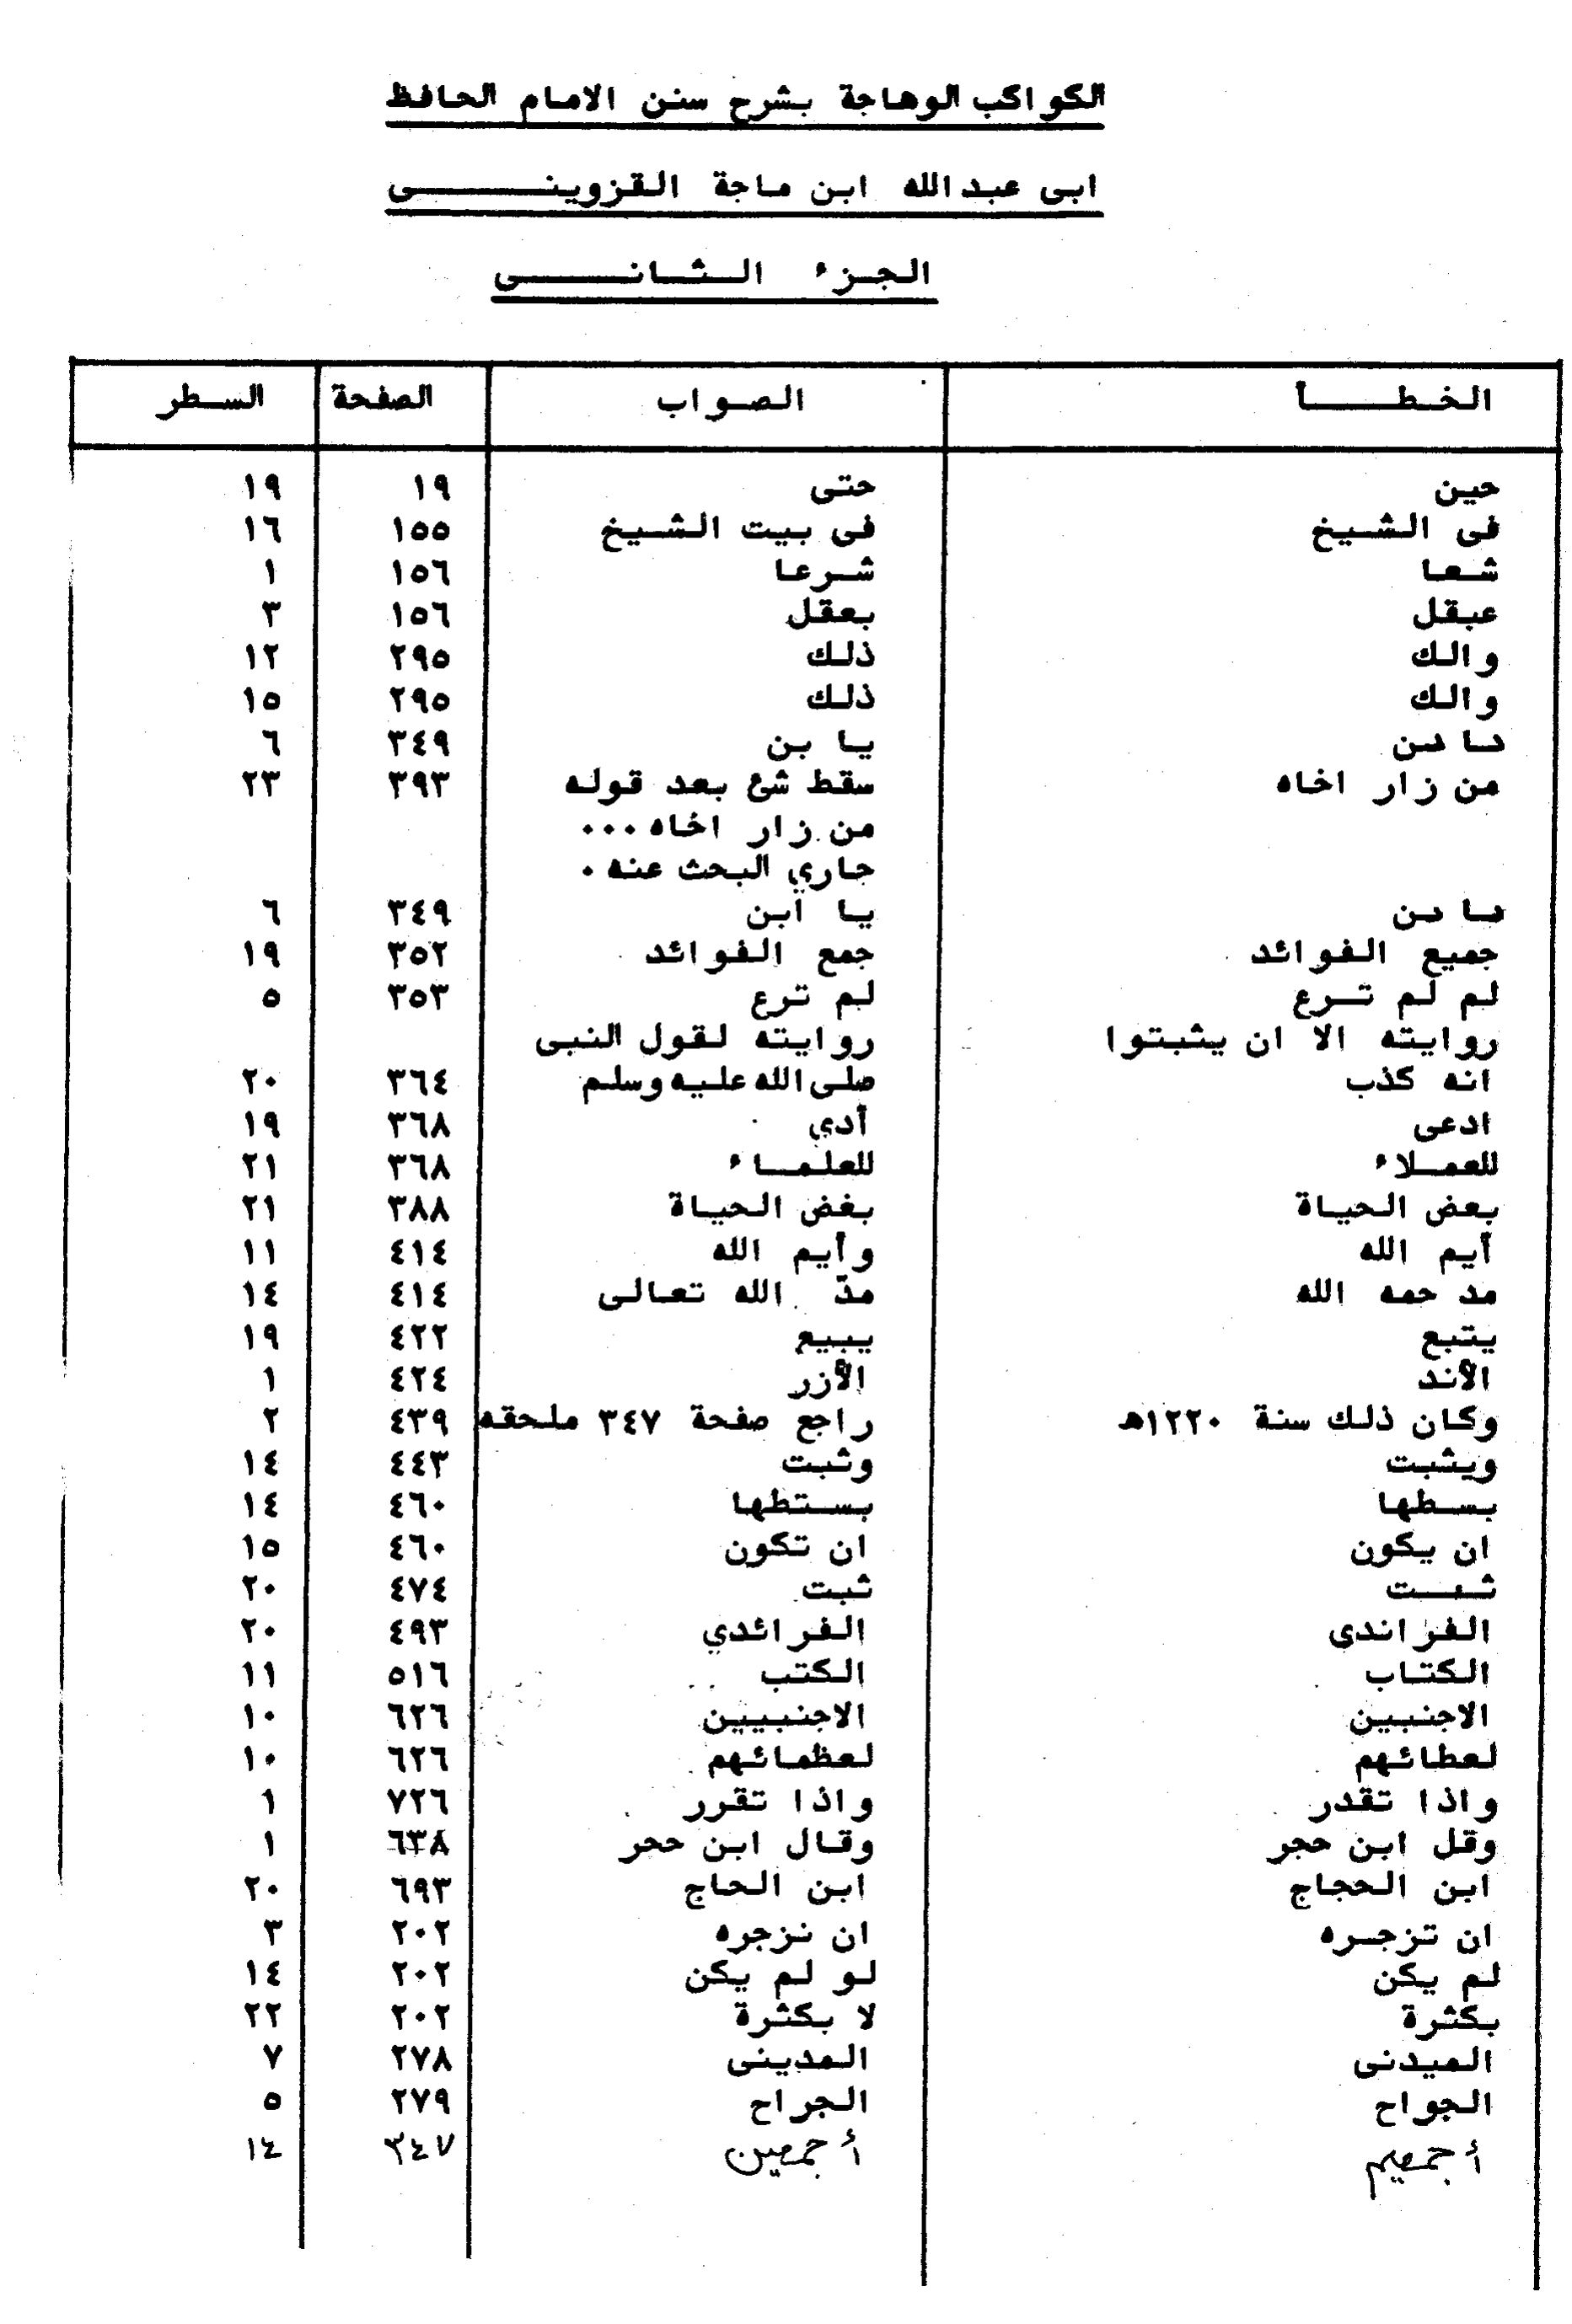 الكواكب الوهاجة بشرح سنن الامام الحافظ
ابى عبدالله ابن ماجة القزوينى
الجزء الثانى
الخطأ الصواب الصفحة السطر
حين حتى ١٩ ١٩
فى الشيخ فى بيت الشيخ ١٥٥ ١٦
شعا شرعا ١٥٦ ١
عبقل بعقل ١٥٦ ٣
والك ذلك ٢٩٥ ١٢
والك ذلك ٢٩٥ ١٥
يا بن ٣٤٩ ٦
من زار اخاه سقط شئ بعد قوله ٣٩٣ ٢٣
من زار اخاه ...
جاري البحث عنه .
يا ابن ٣٤٩ ٦
جميع الفوائد جمع الفوائد ٣٥٢ ١٩
لم لم ترع لم ترع ٣٥٣ ٥
روايته الا ان يثبتوا روايته لقول النبى
انه كذب صلى الله عليه وسلم ٣٦٤ ٢٠
ادعى أدي ٣٦٨ ١٩
للعملاء للعلماء ٣٦٨ ٢١
بعض الحياة بغض الحياة ٣٨٨ ٢١
أيم الله وأيم الله ٤١٤ ١١
مد حمه الله مدّ الله تعالى ٤١٤ ١٤
يتبع يبيع ٤٢٢ ١٩
الأند الأزر ٤٢٤ ١
وكان ذلك سنة ١٢٢٠هـ راجع صفحة ٣٤٧ ملحقه ٤٣٩ ٢
ويثبت وثبت ٤٤٣ ١٤
بسطها بستطها ٤٦٠ ١٤
ان يكون ان تكون ٤٦٠ ١٥
ثبت ٤٧٤ ٢٠
الفراندى الفرائدي ٤٩٣ ٢٠
الكتاب الكتب ٥١٦ ١١
الاجنبين الاجنبيين ٦٢٦ ١٠
لعطائهم لعظمائهم ٦٢٦ ١٠
واذا تقدر واذا تقرر ٧٢٦ ١
وقل ابن حجر وقال ابن ححر ٦٣٨ ١
ابن الحجاج ابن الحاج ٦٩٣ ٢٠
ان تزجره ان نزجره ٢٠٢ ٣
لم يكن لو لم يكن ٢٠٢ ١٤
بكثرة لا بكثرة ٢٠٢ ٢٢
الميدنى المدينى ٢٧٨ ٧
الجواح الجراح ٢٧٩ ٥
أجمعيم أجمعين ٣٤٧ ١٤